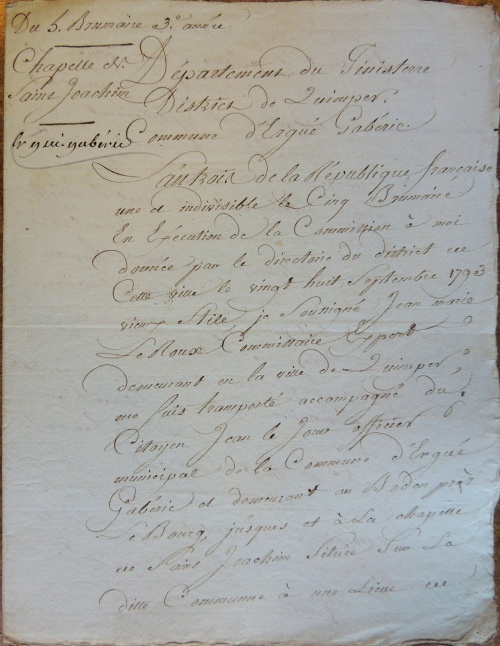 Du 5. Brumaire 3e. année
Chapelle de
Saint Joachim
Ergué-gabéric
Département du Finisterre
District de Quimper.
Commune d'Ergué Gabéric.
L'an trois de la République française
une et indivisible le Cinq Brumaire
En Exécution de la Commission à moi
donnée par le directoire du district de
Cette ville le vingt huit Septembre 1793
vieux Stile, je Soussigné Jean marie
LeRoux Commissaire Expert
demeurant en la ville de Quimper,
me suis transporté accompagné du
Citoyen Jean le Jour officier
municipal de la Commune d'Ergué
Gabéric et demeurant au Bodou près
Le Bourg, jusques et à La chapelle
de Saint Joachim Située Sur La
ditte Commune à une Lieue de